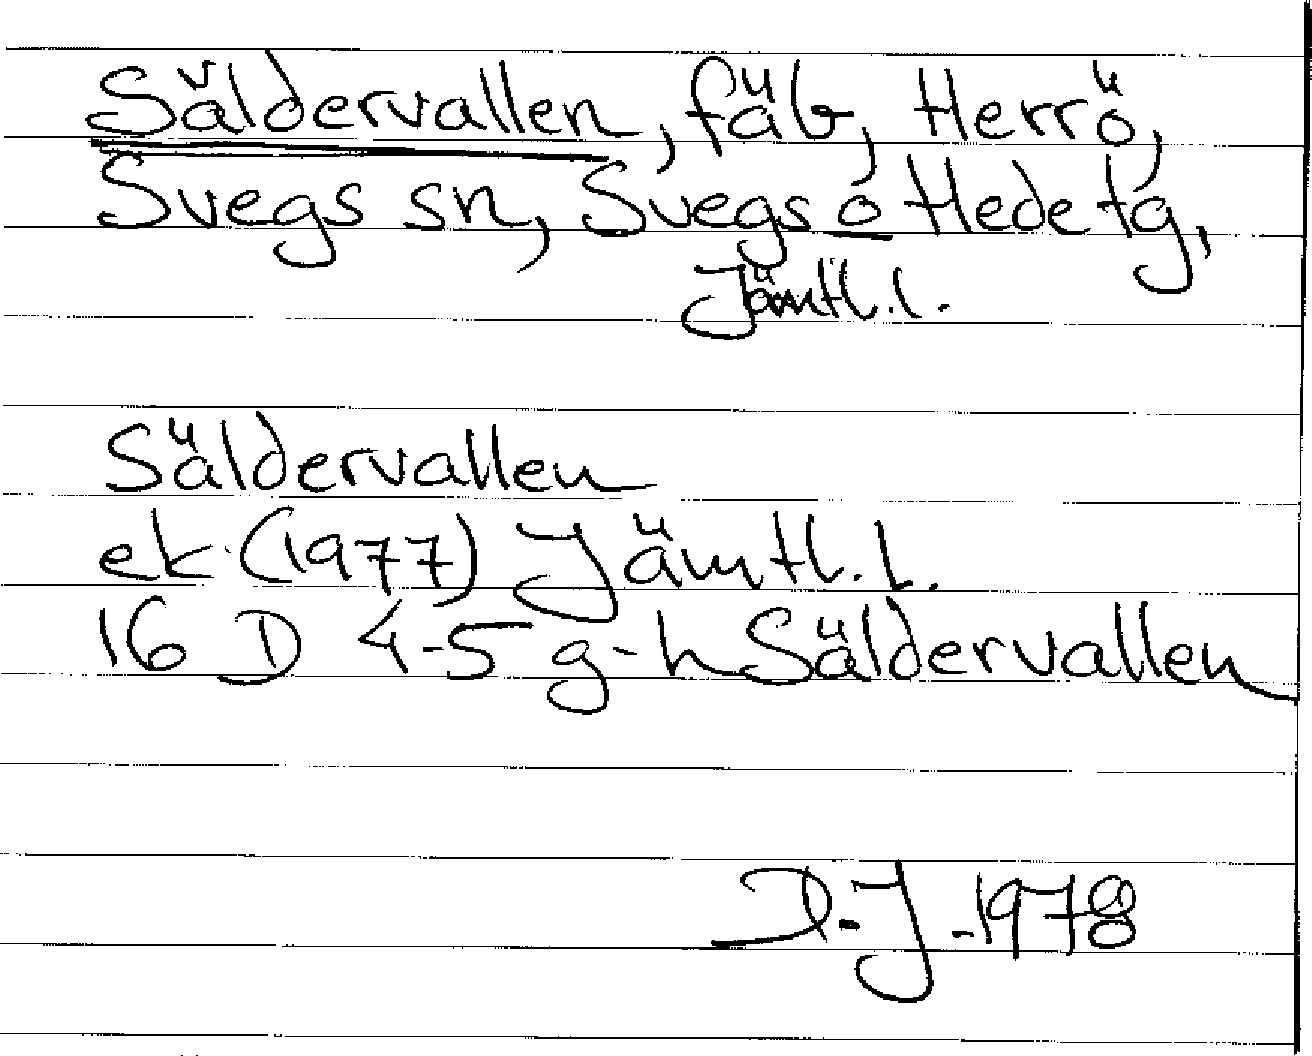 Säldervallen, fäb, Herrö,
Svegs sn, Svegs o Hede tg,
Jämtl. l.
Säldervallen
ek (1977) Jämtl. l.
16 D 4-5 g-h Säldervallen
D-J-1978